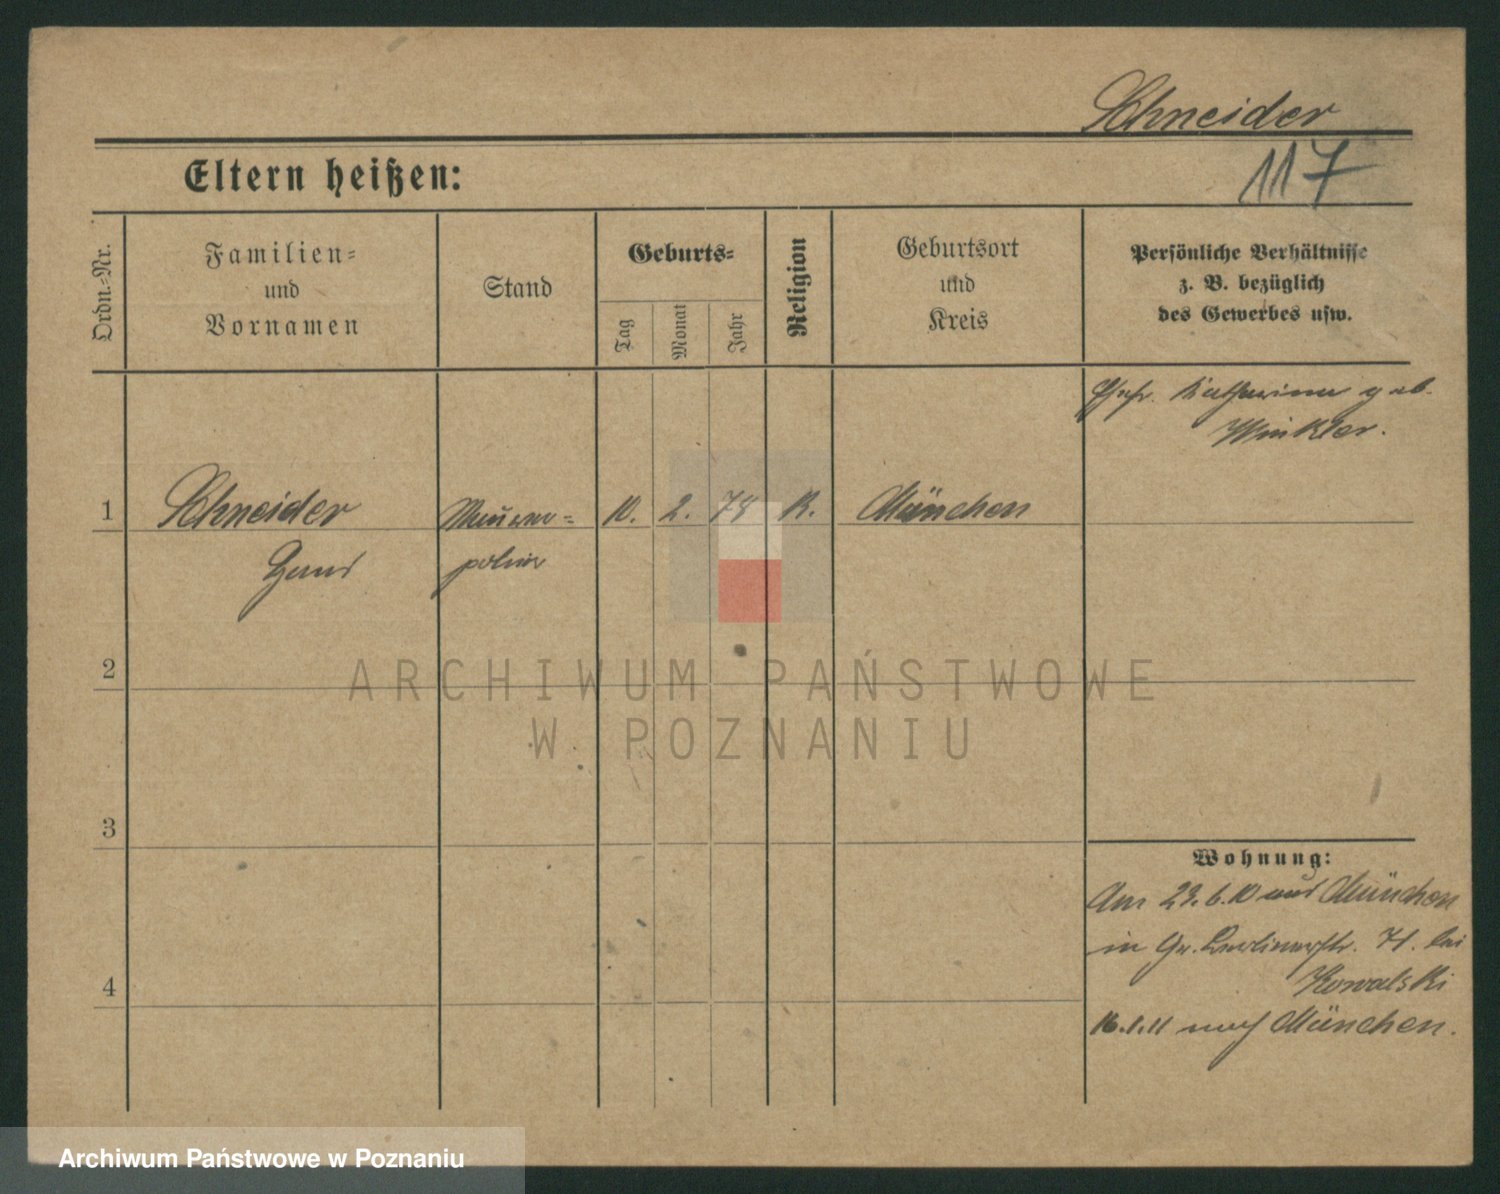 Schneider
117
Eltern heißen:
Ordn.-Nr.
Familien-
und
Vornamen
Stand
Geburts-
Tag
Monat
Jahr
Religion
Geburtsort
und
Kreis
Persönliche Verhältnisse
z. B. bezüglich
des Gewerbes usw.
Ehefr. Katharina geb.
Winkler.
1 Schneider 10. 2. 78 K. München
Hans polier
2
ARCHIWUM PAŃSTWOWE
W POZNANIU
3
Wohnung:
Am 23.6.10 aus München
in Gr. Berlinerstr. 71. bei
4
Kowalski
16.1.11 nach München.
Archiwum Państwowe w Poznaniu